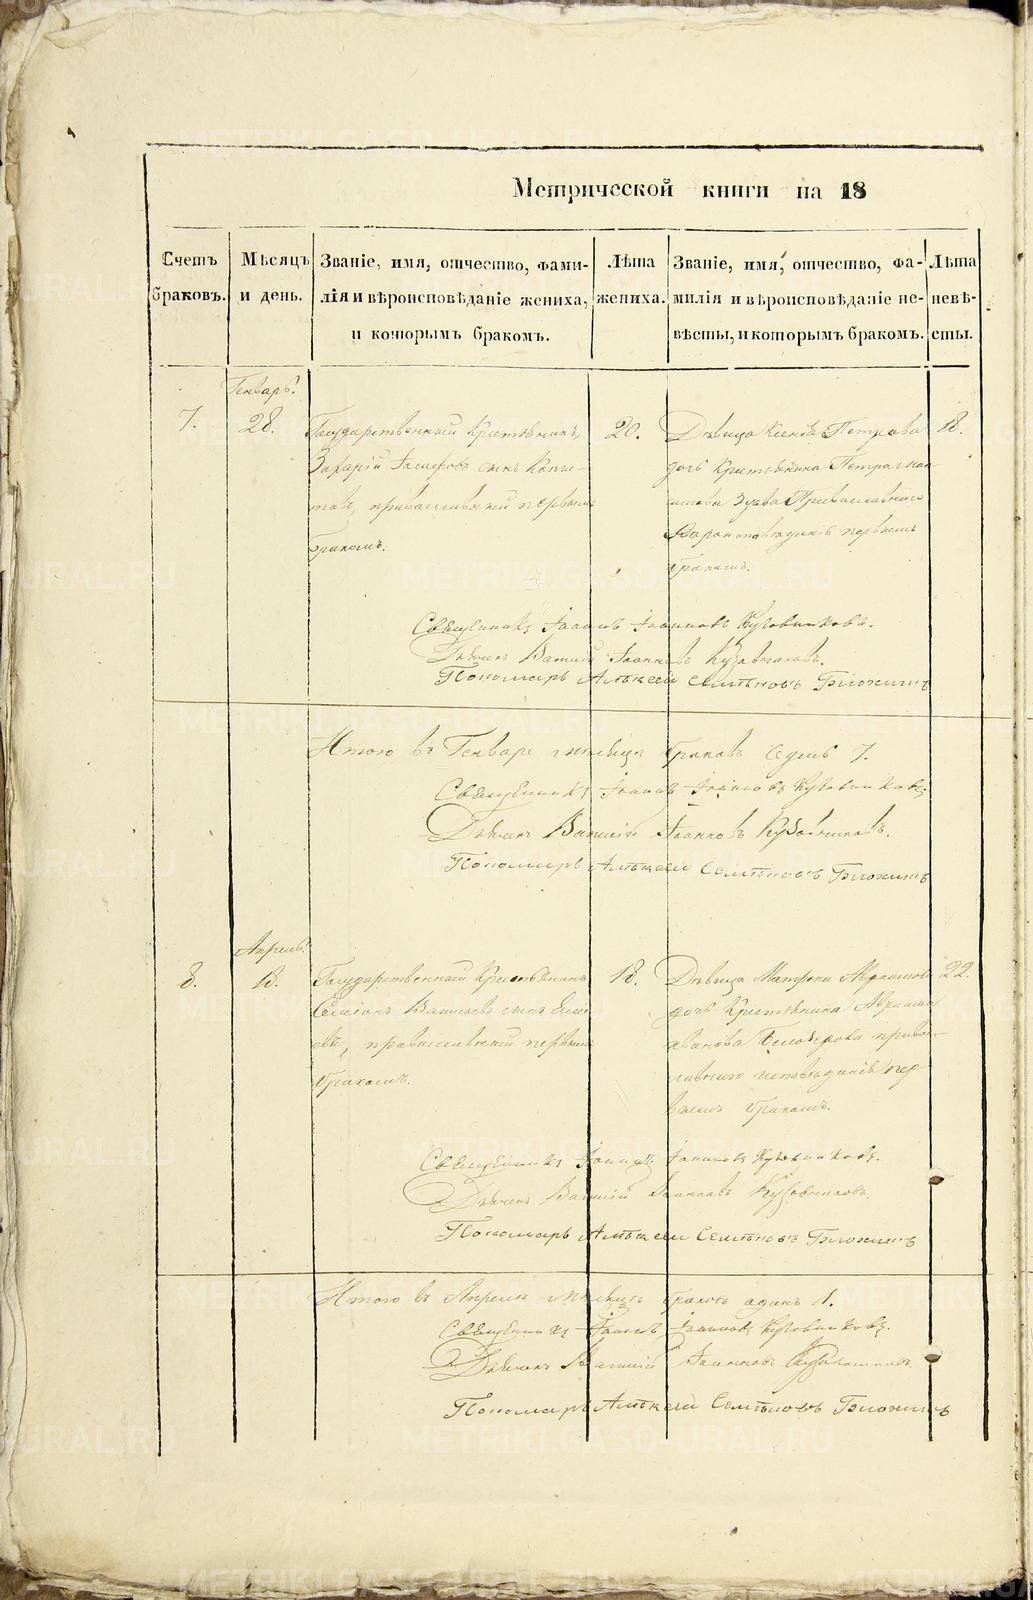 Метрической книги на 18
Счетъ браковъ.
Мѣсяцъ и день.
Званіе, имя, отчество, фами-
лія и вѣроисповѣданіе жениха,
и которымъ бракомъ.
Лѣта
жениха.
Званіе, имя, отчество, фа-
милія и вѣроисповѣданіе не-
вѣсты, и которымъ бракомъ.
Лѣта
невѣ-
сты.
Генварь.
7.
28.
Государственный Крестьянинъ,
Захарій сынъ
православный первымъ
бракомъ.
20.
Дѣвица Ксенія Петрова
дочь Крестьянина Петра
Зуева Православнаго
первымъ
бракомъ.
18.
Священникъ Іоаннъ Іоанновъ Кузовниковъ.
Дьячекъ Василій Іоанновъ Кузовниковъ.
Пономарь Алѣксей Семѣновъ
Итого въ Генваре месяце браковъ седмь 7.
Священникъ Іоаннъ Іоанновъ Кузовниковъ
Дьячекъ Василій Іоанновъ Кузовниковъ.
Пономарь Алѣксей Семѣновъ
Апрель.
8.
18.
Государственный Крестьянинъ
Симіонъ Васильевъ сынъ
православный первымъ
бракомъ.
18.
Дѣвица Матрона
дочь Крестьянина
Иванова православ-
исповѣданія пер
вымъ бракомъ.
22.
Священникъ Іоаннъ Іоанновъ Кузовниковъ.
Дьячекъ Василій Іоанновъ Кузовниковъ.
Пономарь Алѣксей Семѣновъ
Итого въ Апрелѣ месяцѣ бракъ одинъ 1.
Священникъ Іоаннъ Іоанновъ Кузовниковъ.
Дьячекъ Василій Іоанновъ Кузовниковъ.
Пономарь Алѣксей Семѣновъ
METRIKI.GASO-URAL.RU